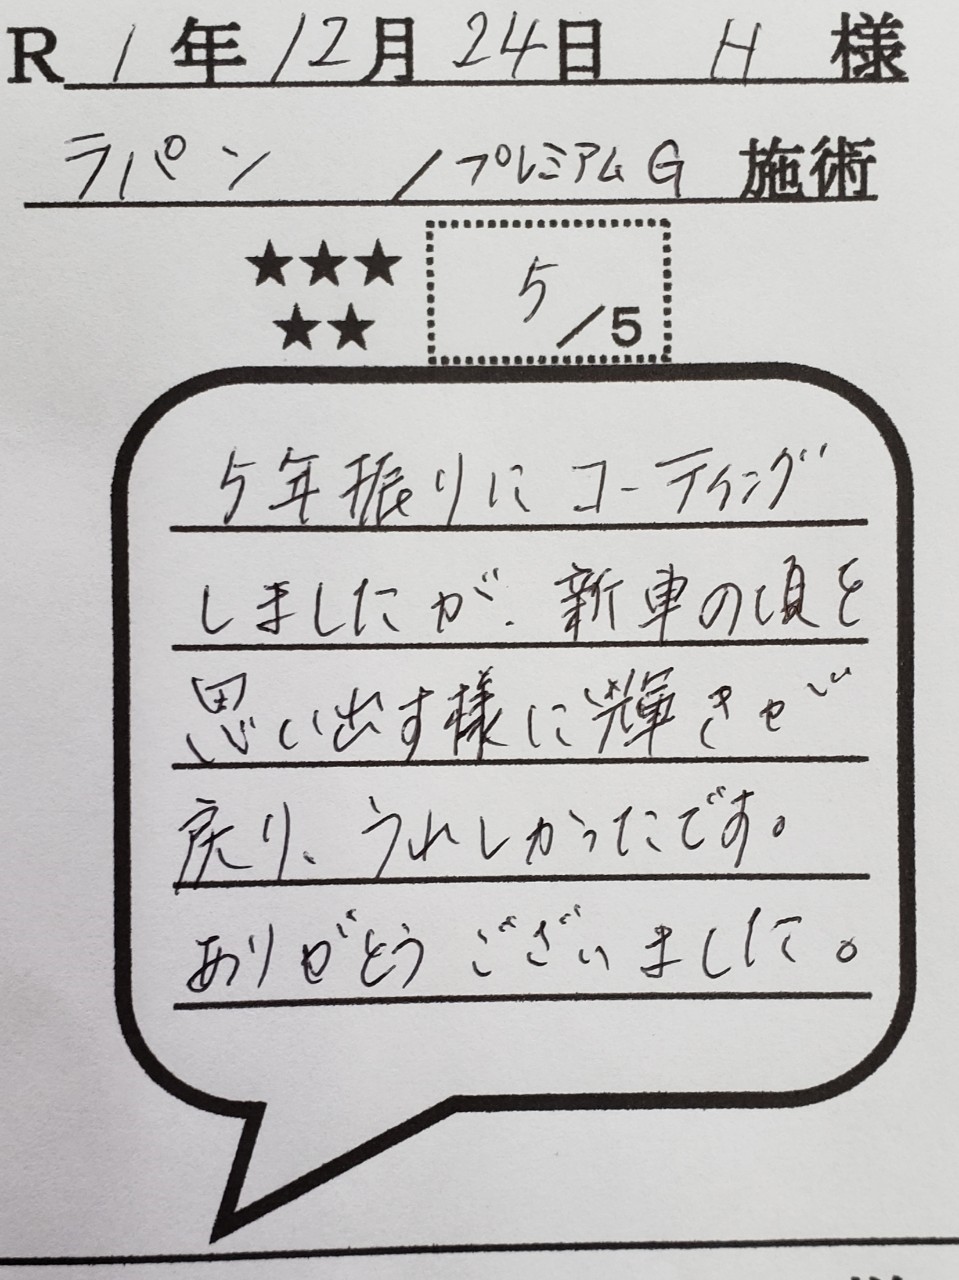 R 1 年 12 月 24 日 H 様
ラパン / プレミアムG 施術
★★★
★★
5 /5
5年振りにコーティング
しましたが、新車の頃を
思い出す様に輝きが
戻り、うれしかったです。
ありがとうございました。